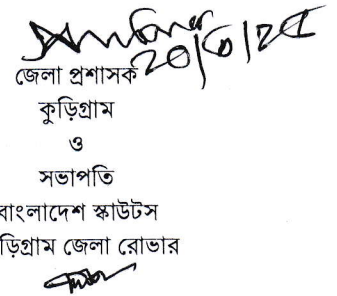 ২০/৩/২৫
জেলা প্রশাসক
কুড়িগ্রাম
ও
সভাপতি
বাংলাদেশ স্কাউটস
ড়িগ্রাম জেলা রোভার